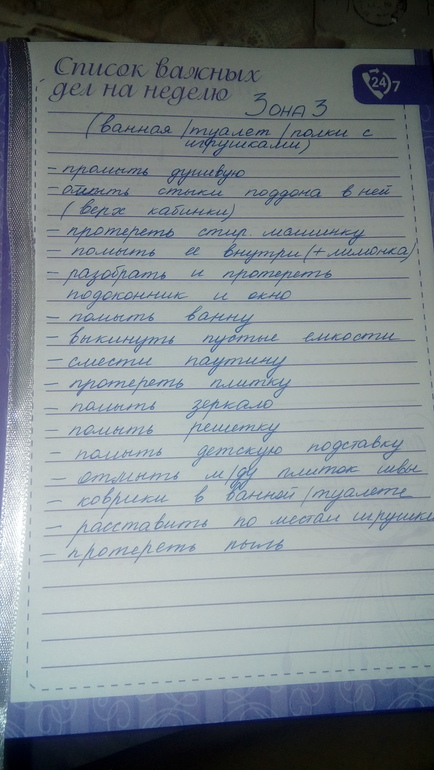 Список важных
дел на неделю
24
7
Зона 3
(ванная / туалет / полки с
игрушками)
- промыть душевую
- отмыть стыки поддона в ней
(верх кабинки)
- протереть стир. машинку
- помыть ее внутри (+ лимонка)
- разобрать и протереть
подоконник и окно
- помыть ванну
- выкинуть пустые емкости
- смести паутину
- протереть плитку
- помыть зеркало
- помыть решетку
- помыть детскую подставку
- отмыть м/ду плиток швы
- коврики в ванной / туалете
- расставить по местам игрушки
- протереть пыль